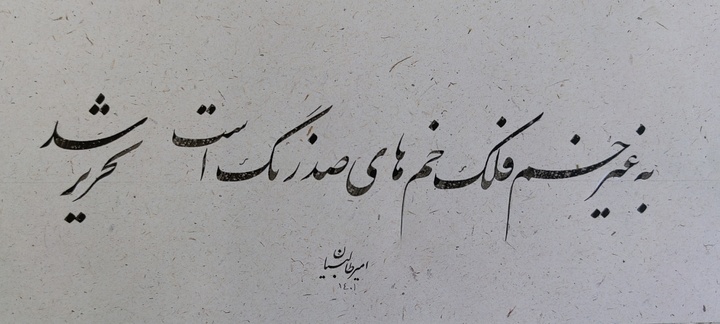 به غیر خم فلک خم های صد رنگ است تحریر شد
امیر طالبیان
۱۴۰۱